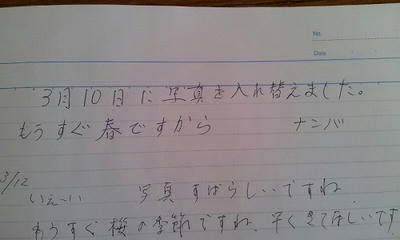 No.
Date
3月10日に写真を入れ替えました。
もうすぐ春ですから ナンバ
3/12
いぇーい 写真すばらしいですね
もうすぐ桜の季節ですね、早くきてほしいです